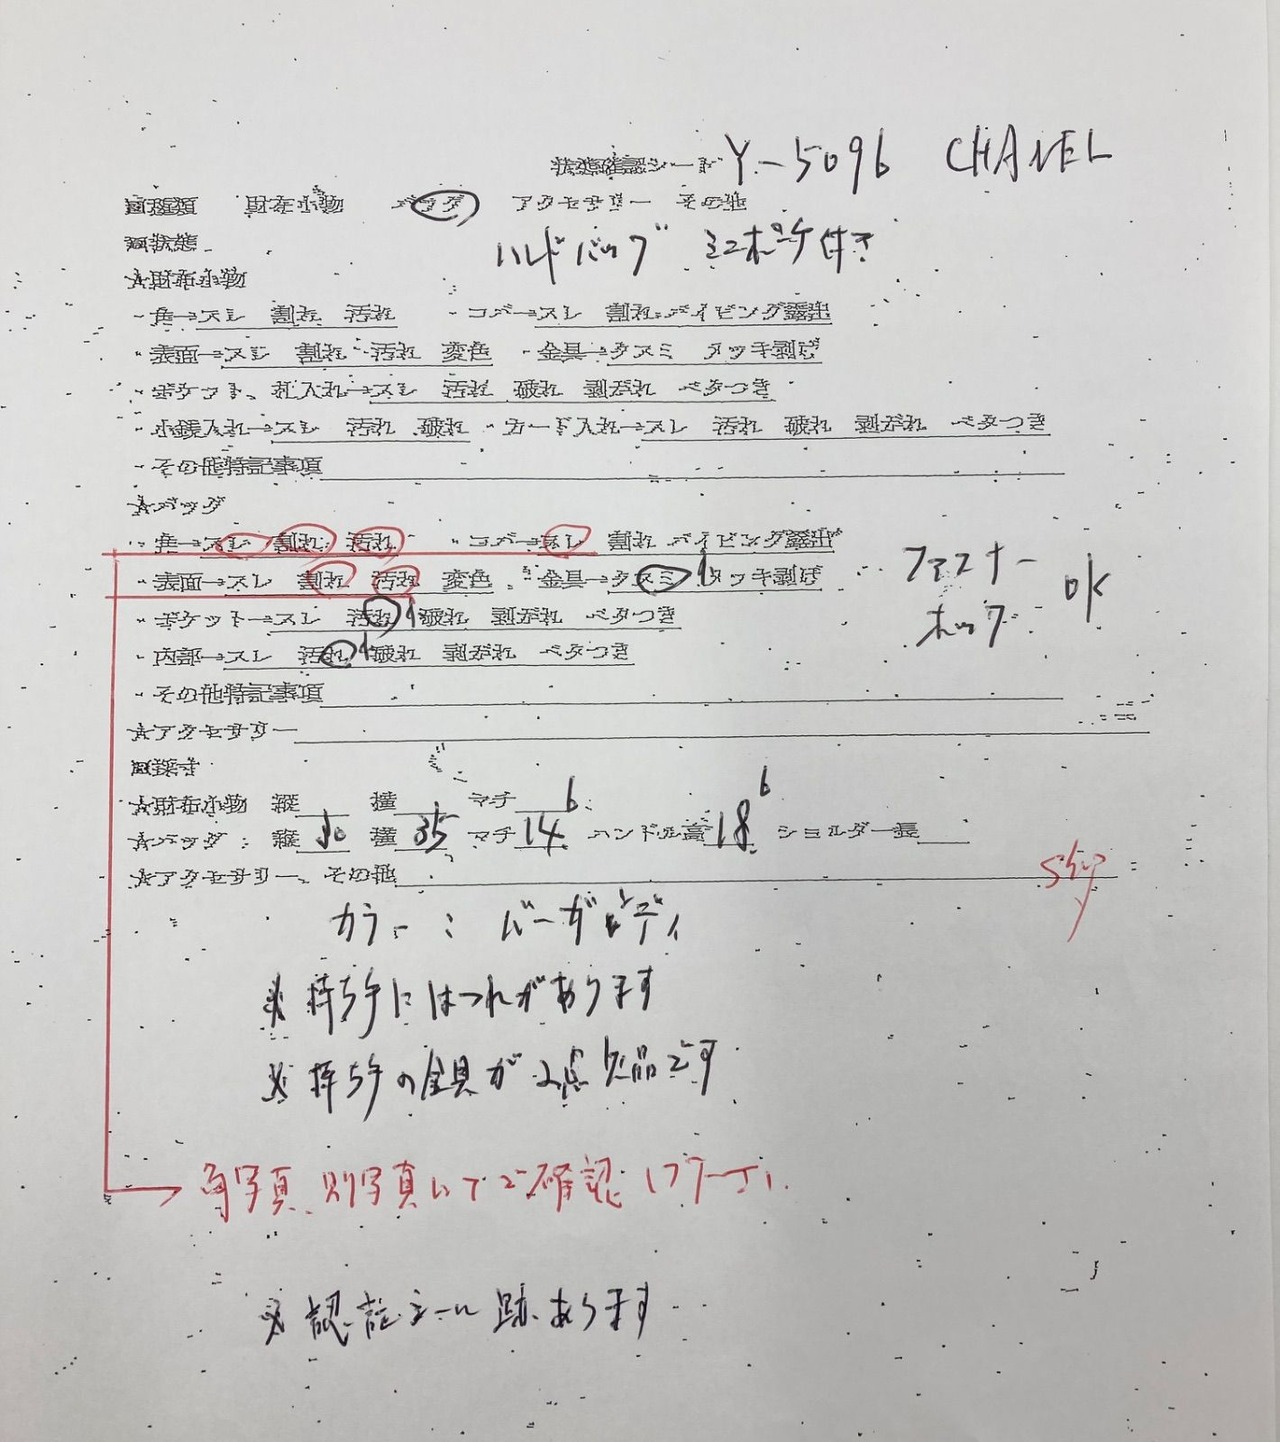 状態確認シート Y-5096 CHANEL
□種類 財布小物 バッグ アクセサリー その他
□状態 ハンドバッグ ミニポケ付き
★財布小物
・角→スレ 割れ 汚れ ・コバ→スレ 割れ パイピング露出
・表面→スレ 割れ 汚れ 変色 ・金具→クスミ メッキ剥げ
・ポケット、札入れ→スレ 汚れ 破れ 剥がれ ベタつき
・小銭入れ→スレ 汚れ 破れ ・カード入れ→スレ 汚れ 破れ 剥がれ ベタつき
・その他特記事項
★バッグ
・角→スレ 割れ 汚れ ・コバ→スレ 割れ パイピング露出
・表面→スレ 割れ 汚れ 変色 ・金具→クスミ メッキ剥げ
ファスナー
ホック OK
・ポケット→スレ 汚れ 破れ 剥がれ ベタつき
・内部→スレ 汚れ 破れ 剥がれ ベタつき
・その他特記事項
★アクセサリー
□採寸
★財布小物 縦 横 マチ 6 6
★バッグ: 縦 30 横 35 マチ 14 ハンドル高 18 ショルダー長
★アクセサリー、その他
カラー: バーガンディ
※持ち手にほつれがあります
※持ち手の金具が2点欠品です
角写真、別写真にてご確認
※認証シール跡あります